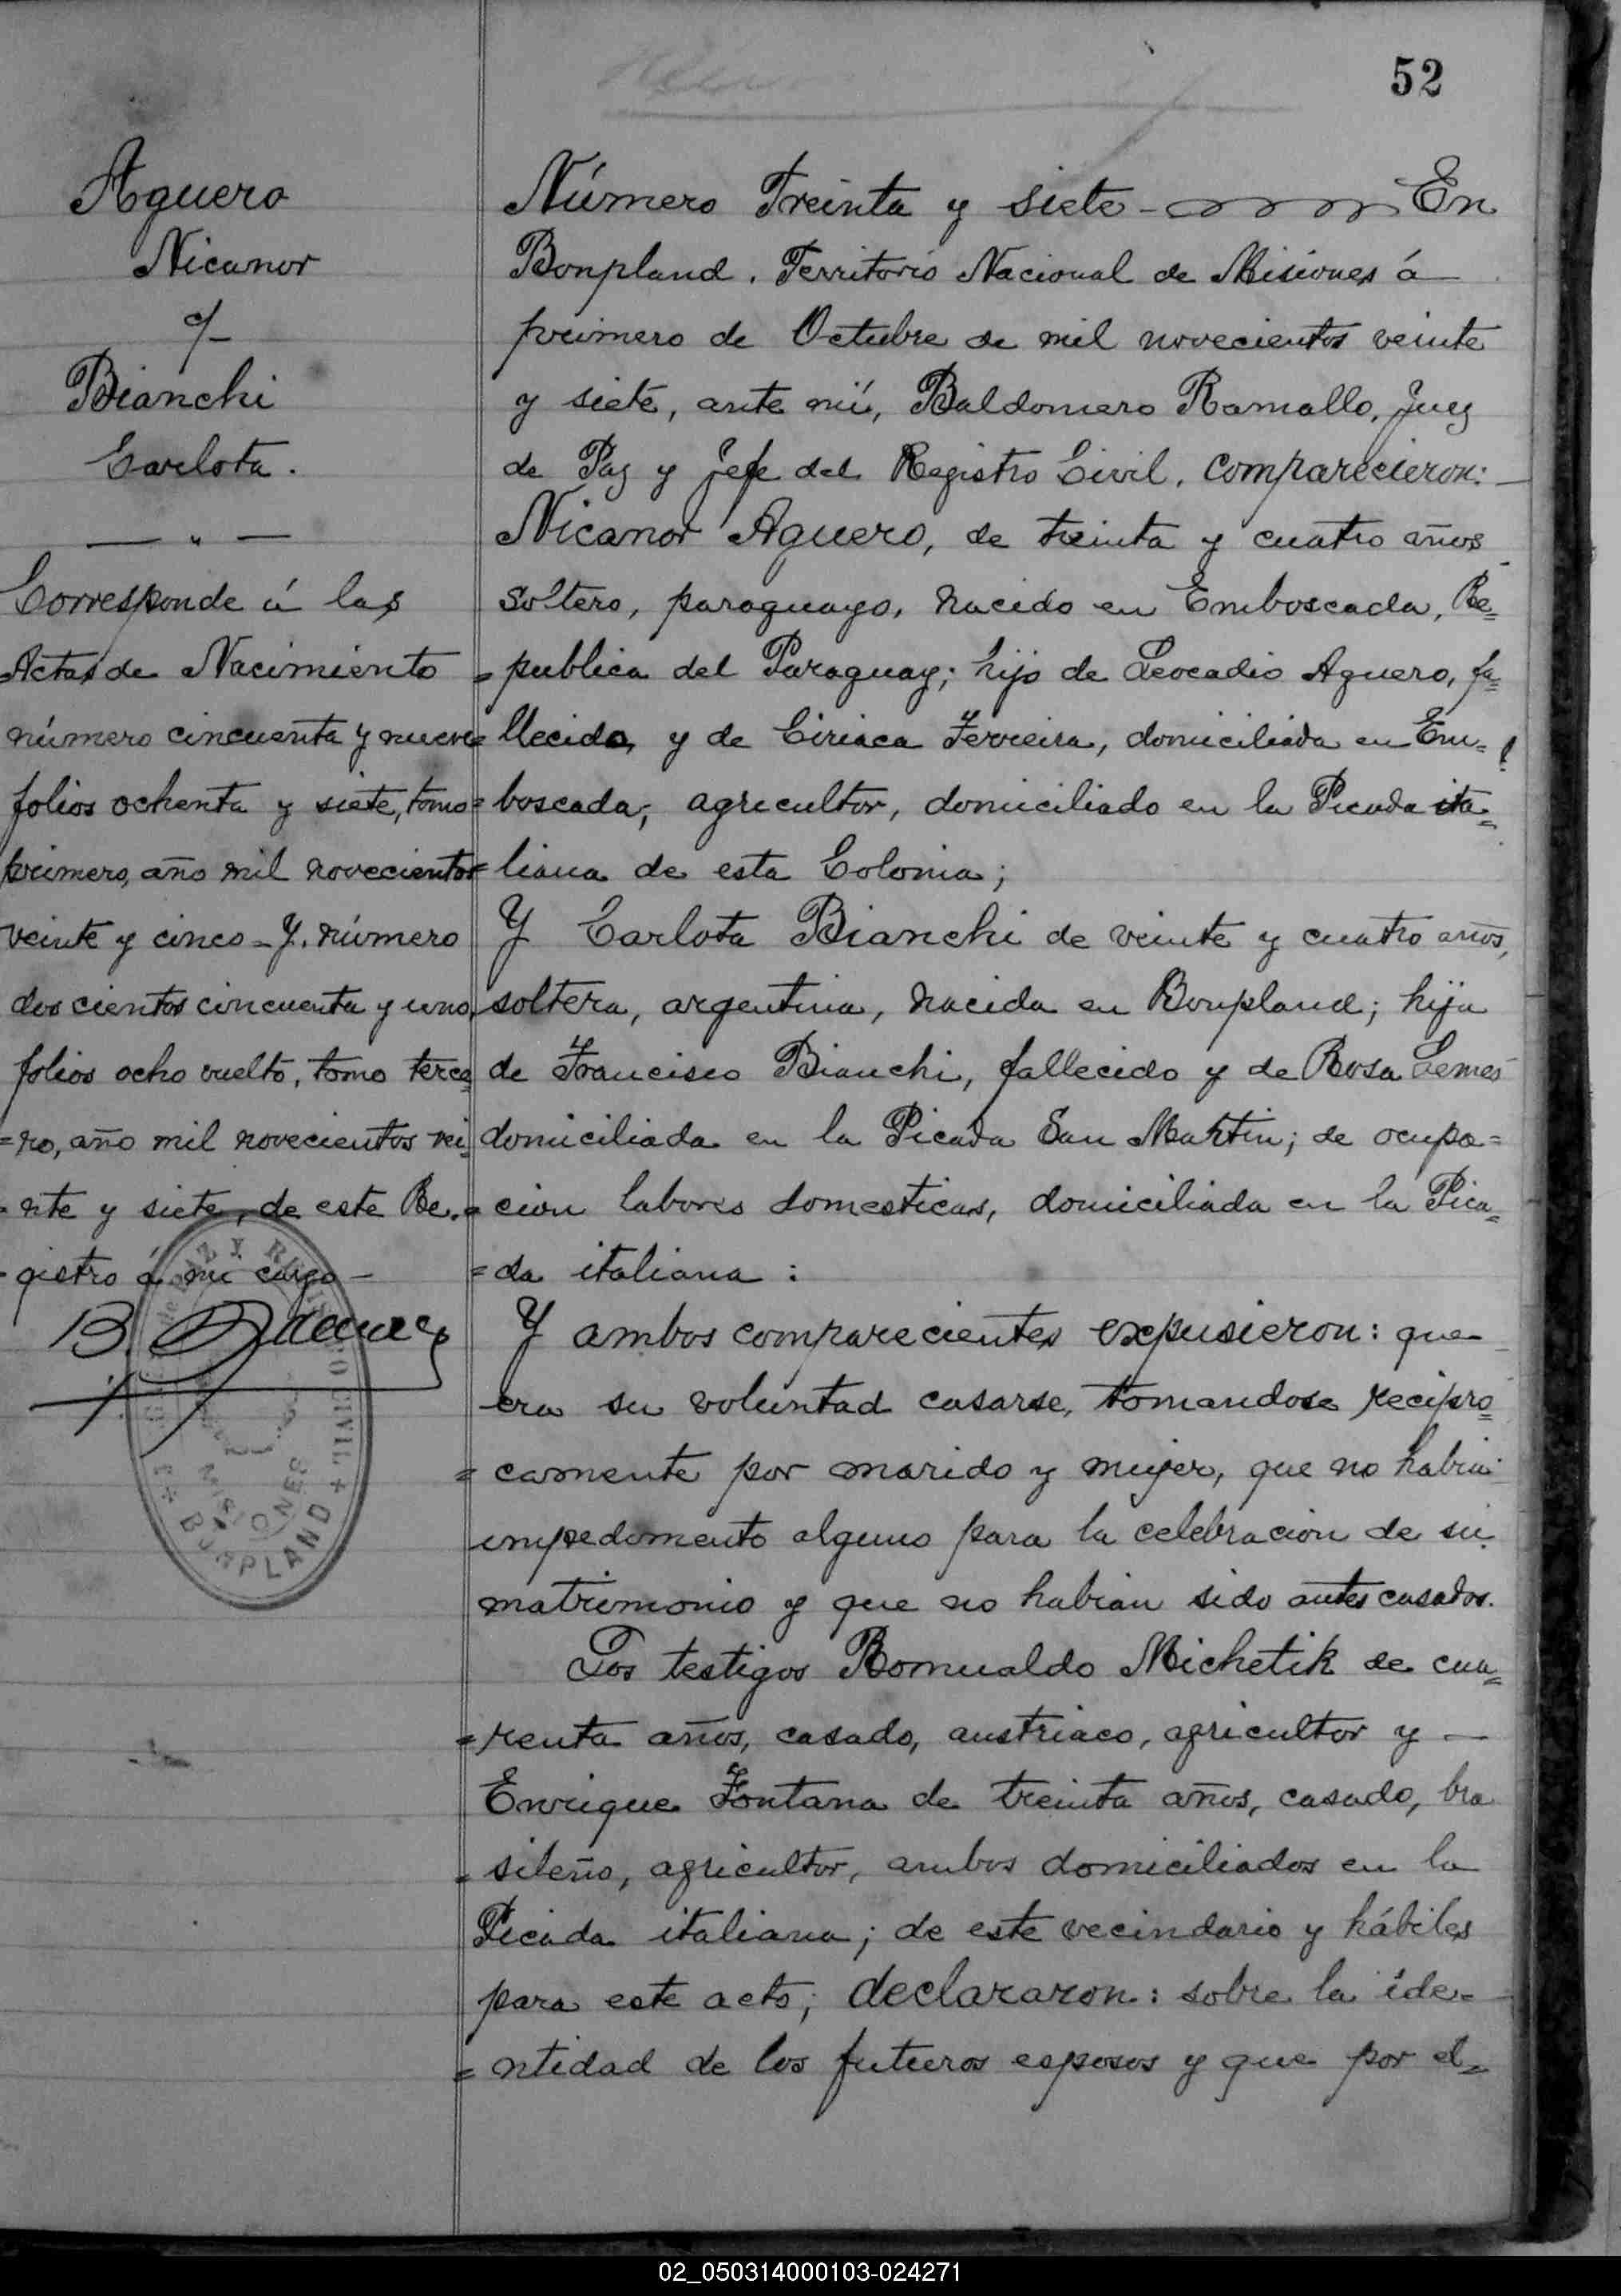 52
Aguero
Nicanor
c/-
Bianchi
Carlota.
— " —
Corresponde á las
Actas de Nacimiento
número cincuenta y nueve
folios ochenta y siete, tomo
primero, año mil novecientos
veinte y cinco - Y. número
doscientos cincuenta y uno,
folios ocho vuelto, tomo terce=
=ro, año mil novecientos vei=
=nte y siete, de este Re.=
=gistro á mi cargo -
B.
REGISTRO CIVIL
MISIONES
BONPLAND
Número Treinta y siete - En
Bonpland. Territorio Nacional de Misiones á
primero de Octubre de mil novecientos veinte
y siete, ante mí, Baldomero Ramallo, Juez
de Paz y Jefe del Registro Civil, comparecieron: —
Nicanor Aguero, de treinta y cuatro años
soltero, paraguayo, nacido en Emboscada, Re=
=publica del Paraguay; hijo de Leocadio Aguero, fa=
llecido, y de Ciriaca Ferreira, domiciliada en Em=
=boscada; agricultor, domiciliado en la Picada ita=
=liana de esta Colonia;
Y Carlota Bianchi de veinte y cuatro años,
soltera, argentina, nacida en Bonpland; hija
de Francisco Bianchi, fallecido y de Rosa Lemes
domiciliada en la Picada San Martin; de ocupa=
=cion labores domesticas, domiciliada en la Pica=
=da italiana :
Y ambos comparecientes expusieron: que
era su voluntad casarse, tomandose recipro=
=camente por marido y mujer, que no habia
impedimento alguno para la celebracion de su
matrimonio y que no habian sido antes casados.
Los testigos Romualdo Michetik de cua=
=renta años, casado, austriaco, agricultor y —
Enrique Fontana de treinta años, casado, bra
=sileño, agricultor, ambos domiciliados en la
Picada italiana; de este vecindario y hábiles
para este acto; declararon: sobre la ide=
=ntidad de los futuros esposos y que por el=
02_050314000103-024271